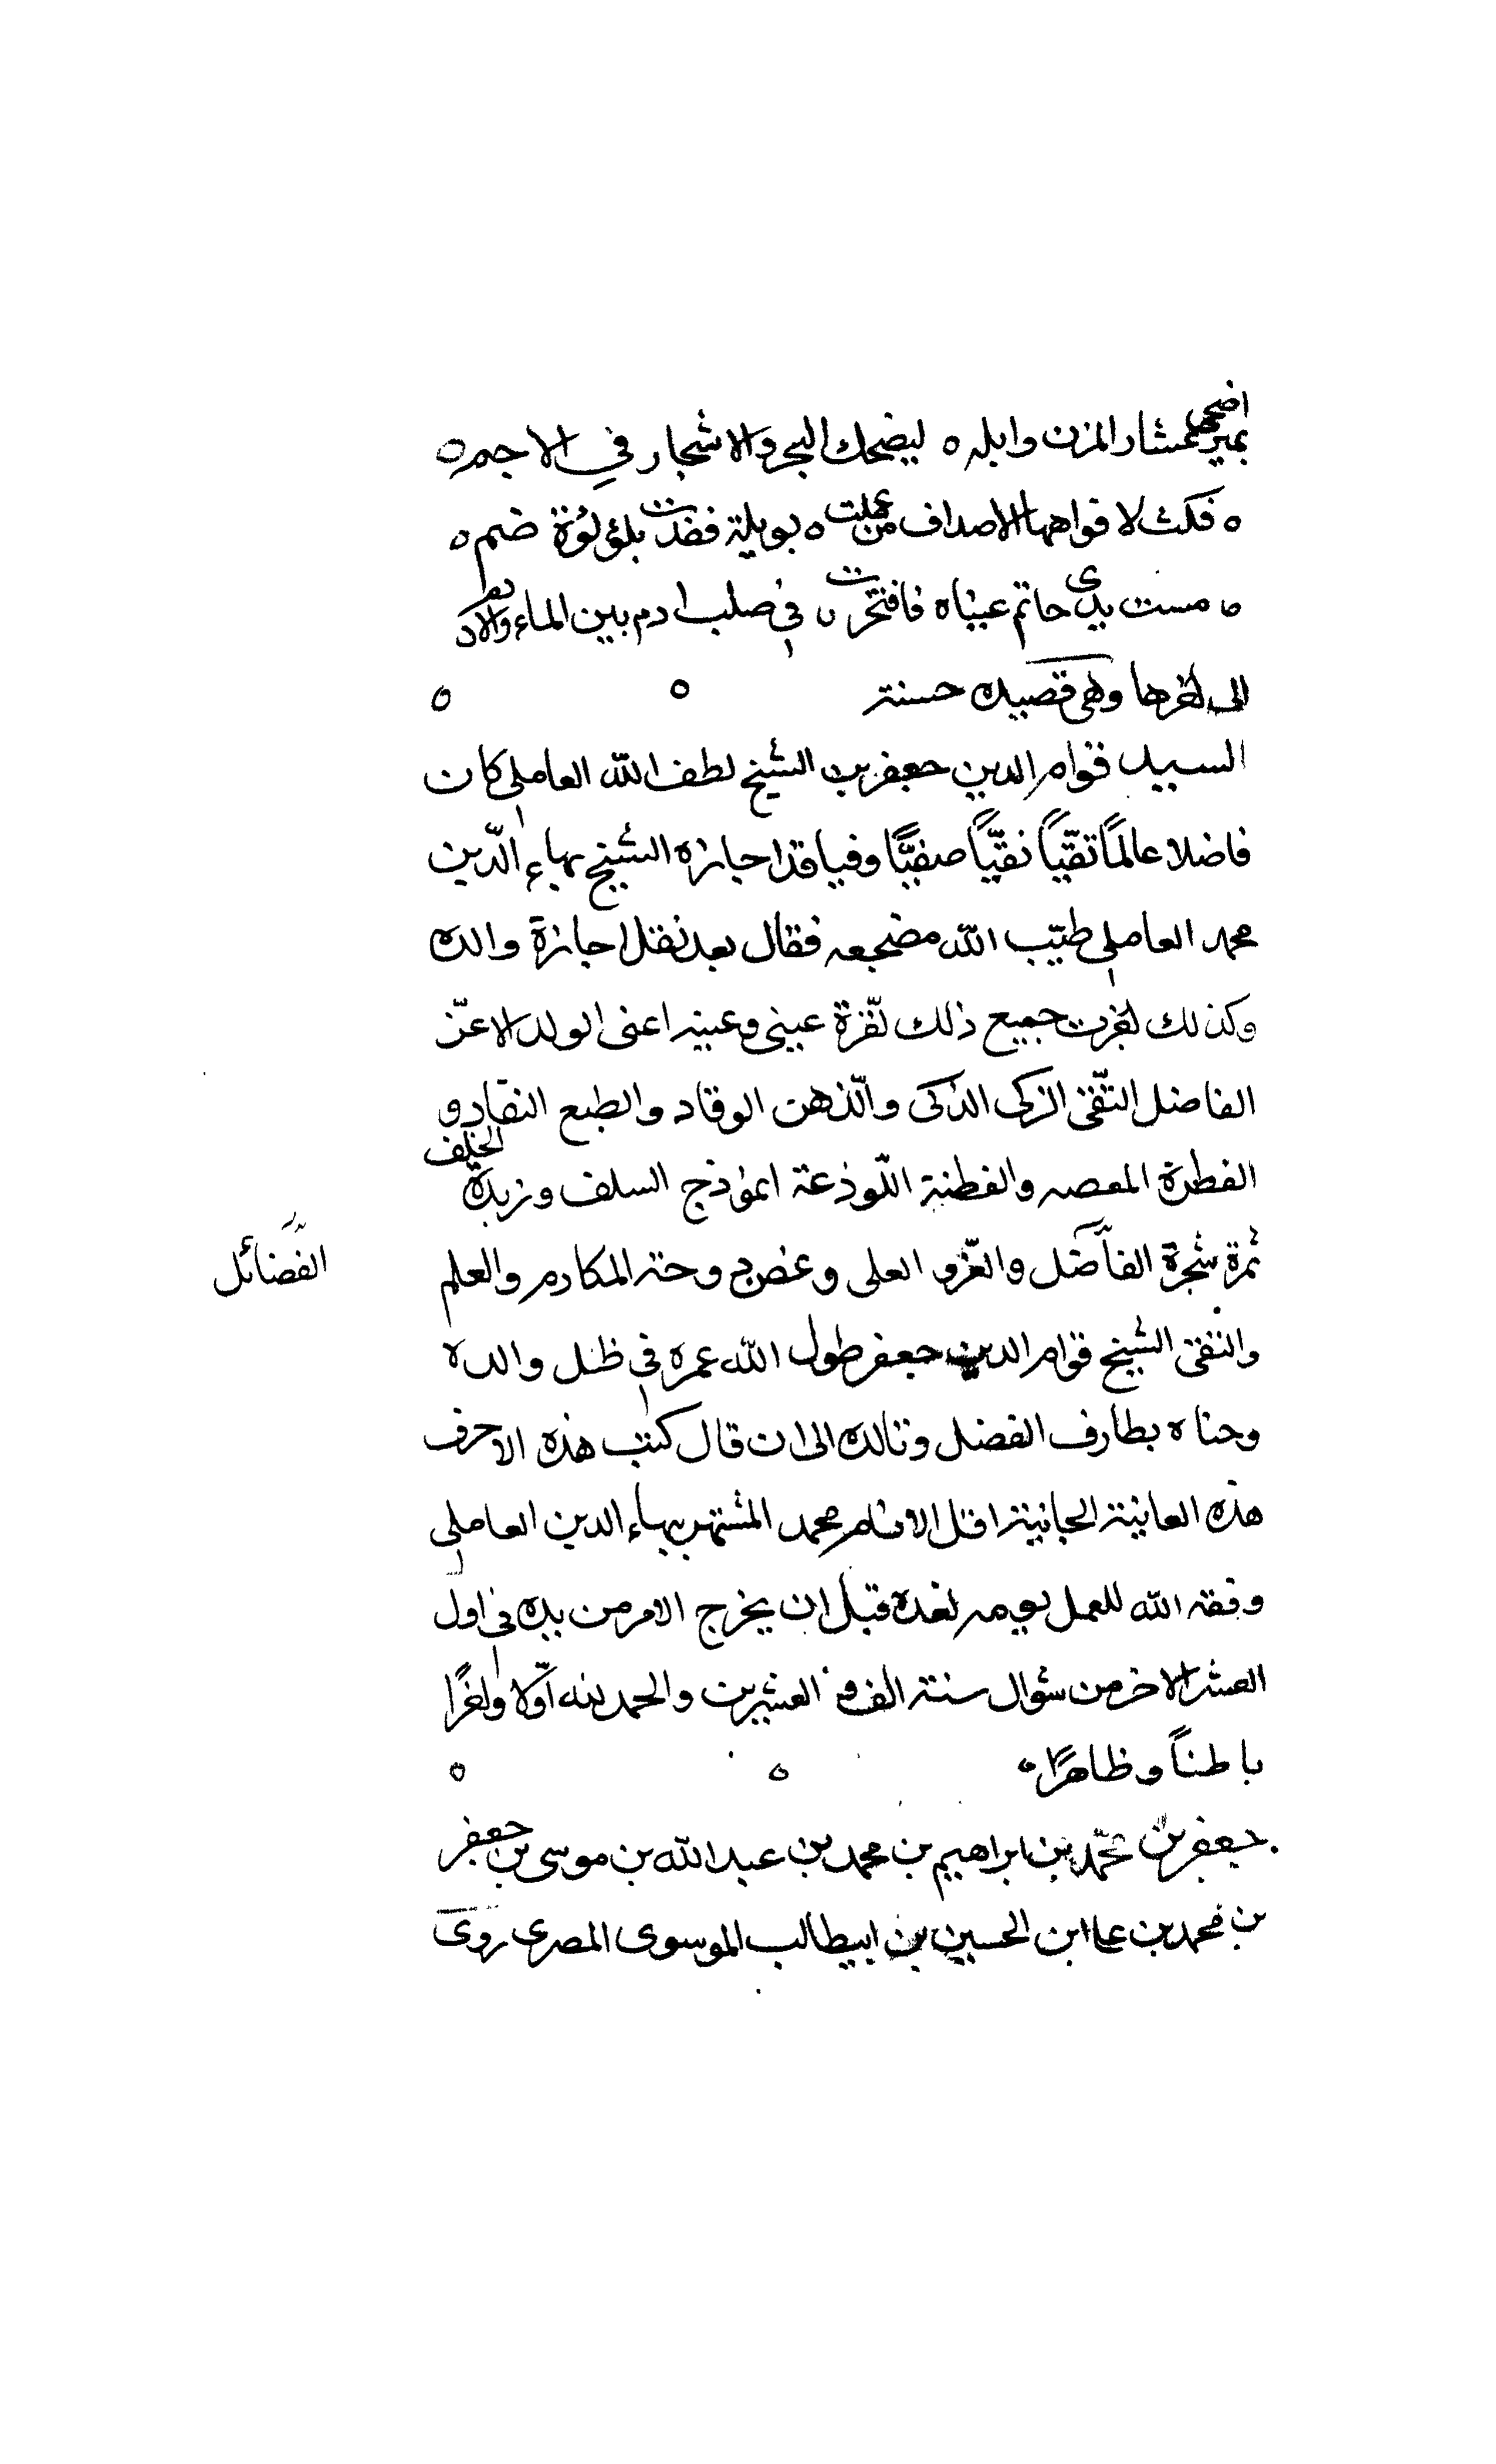 اضحى
بميز بمشار المزن وابله ه ليضحك البحر والاشجار في الاجم ه
ه فكت لافواهها الاصداف من عملت ه بوبلة فغدت بلؤلؤة ضم ه
ه مست يدى حاتم عيناه فافتخرت في صلب ادم بين الماء والادم
الى اخرها وهى قصيده حسنة ه ه
السيد قوام الدين جعفر بن الشيخ لطف الله العاملى كان
فاضلا عالمًا تقّيًا نقّيًا صفيًّا وفيا قد اجازه الشيخ بهاء الدّين
محمد العاملى طيّب الله مضجعه فقال بعد نقل اجازة والده
وكذلك اجزت جميع ذلك لقرّة عينى وعينه اعنى الولد الاعزّ
الفاضل التّقى الزكى الذكى والّذهن الوقاد والطبع النقاد و
الفطرة المعصه والفطنة اللّوذعة انموذج السلف وزبدة الخلف
ثمرة شجرة الفاضل والعّزو العلى وغصن دوحة المكارم والعلم
الفضائل
والتقى الشيخ قوام الدين جعفر طول الله عمره في ظل والده
وحناه بطارف الفضل وتالده الى ان قال كتب هذه الاحرف
هذه العانية الجانية اقل الانام محمد المشتهر ببهاء الدين العاملى
وفقه الله للعمل يومه لغده قبل ان يخرج الامر من يده في اول
العشر الاخر من شوال سنة الف و العشرين والحمد لله اوّلا واخرًا
باطنًا وظاهرًا ه ه ه
جعفر بن محمّد بن ابراهيم بن محمد بن عبد الله بن موسى بن جعفر
بن محمد بن على ابن الحسين بن ابيطالب الموسوى المصرى روى